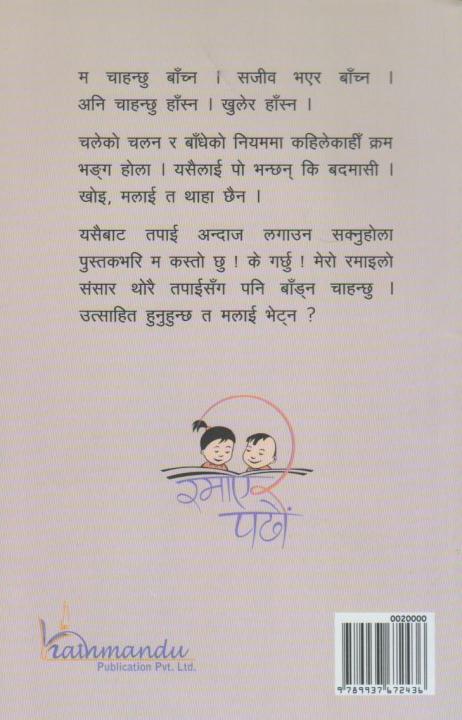 म चाहन्छु बाँच्न । सजीव भएर बाँच्न ।
अनि चाहन्छु हाँस्न । खुलेर हाँस्न ।
चलेको चलन र बाँधेको नियममा कहिलेकाहीँ क्रम
भङ्ग होला । यसैलाई पो भन्छन् कि बदमासी ।
खोइ, मलाई त थाहा छैन ।
यसैबाट तपाई अन्दाज लगाउन सक्नुहोला
पुस्तकभरि म कस्तो छु ! के गर्छु ! मेरो रमाइलो
संसार थोरै तपाईसँग पनि बाँड्न चाहन्छु ।
उत्साहित हुनुहुन्छ त मलाई भेट्न ?
रमाएर
पढौं
Kathmandu
Publication Pvt. Ltd.
0020000
9 789937 672436